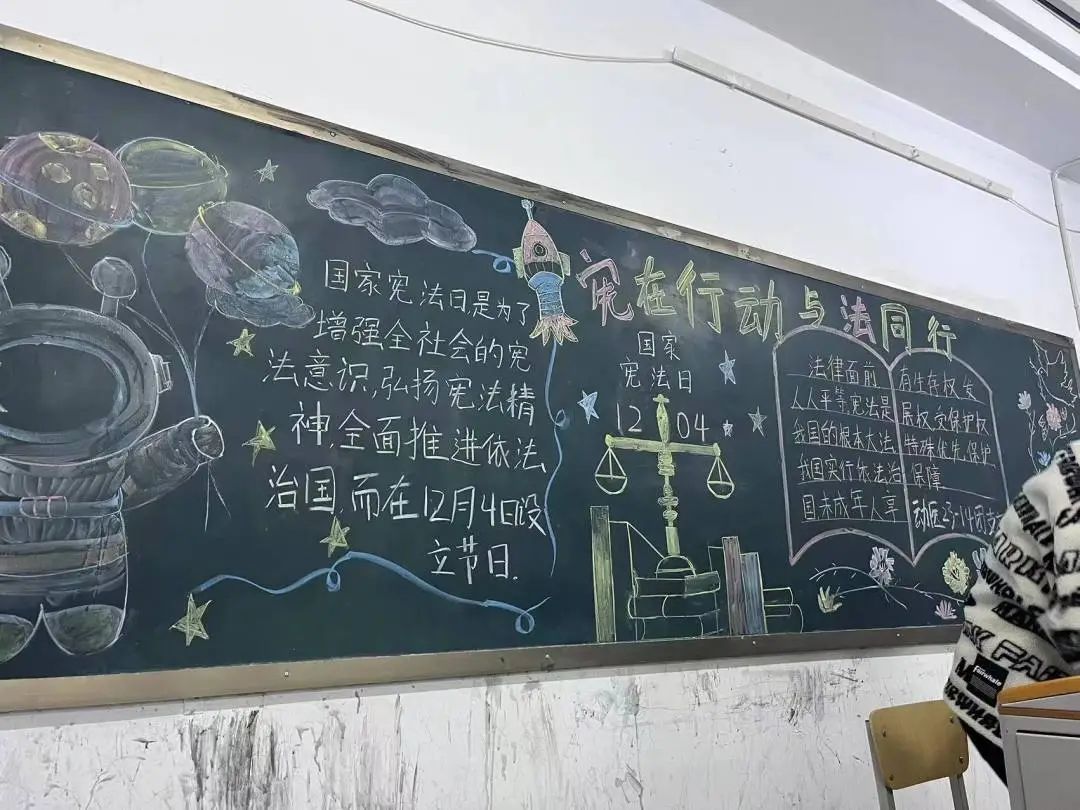 宪在行动与法同行
国家宪法日是为了
增强全社会的宪
法意识,弘扬宪法精
神,全面推进依法
治国,而在12月4日设
立节日.
国家
宪法日
12 04
法律面前
人人平等,宪法是
我国的根本大法
我国实行依法治
国未成年人享
有生存权发
展权受保护权
特殊优先保护
保障
动医23-14团支
Fairwhale